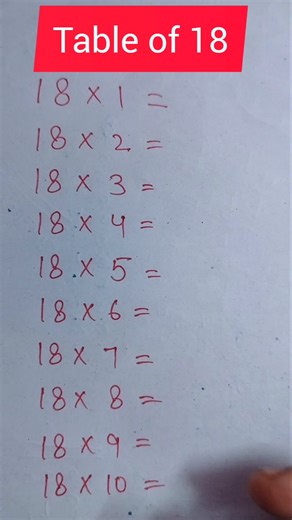 Table of 18
18 × 1 =
18 × 2 =
18 × 3 =
18 × 4 =
18 × 5 =
18 × 6 =
18 × 7 =
18 × 8 =
18 × 9 =
18 × 10 =